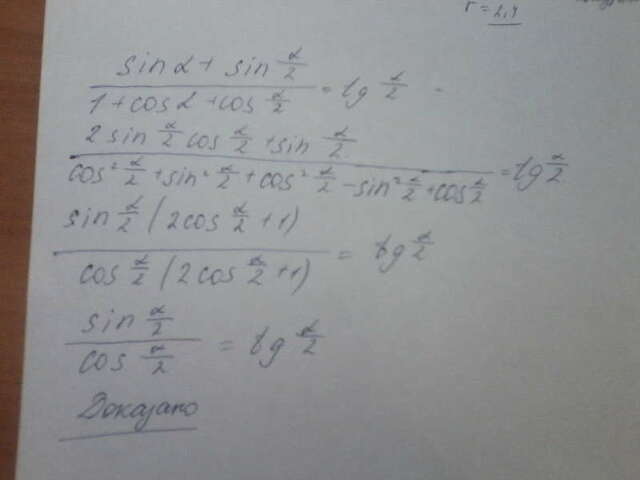 r = 2,4
sin α + sin α/2 / 1 + cos α + cos α/2 = tg α/2
2 sin α/2 cos α/2 + sin α/2 / cos² α/2 + sin² α/2 + cos² α/2 - sin² α/2 + cos α/2 = tg α/2
sin α/2 (2cos α/2 + 1) / cos α/2 (2cos α/2 + 1) = tg α/2
sin α/2 / cos α/2 = tg α/2
Доказано